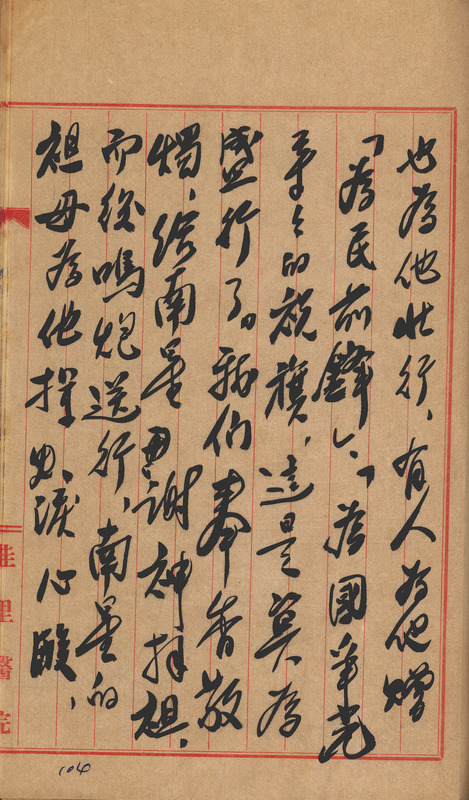 也為他壯行、有人為他贈
「為民前鋒」、「為國爭光
的祝旗，這是莫為
盛行了。我们奉香敬
燭、給南星思謝神拜祖、
而後鳴炮送行、南星的
祖母為他揮淚心酸、
佳里醫院
104